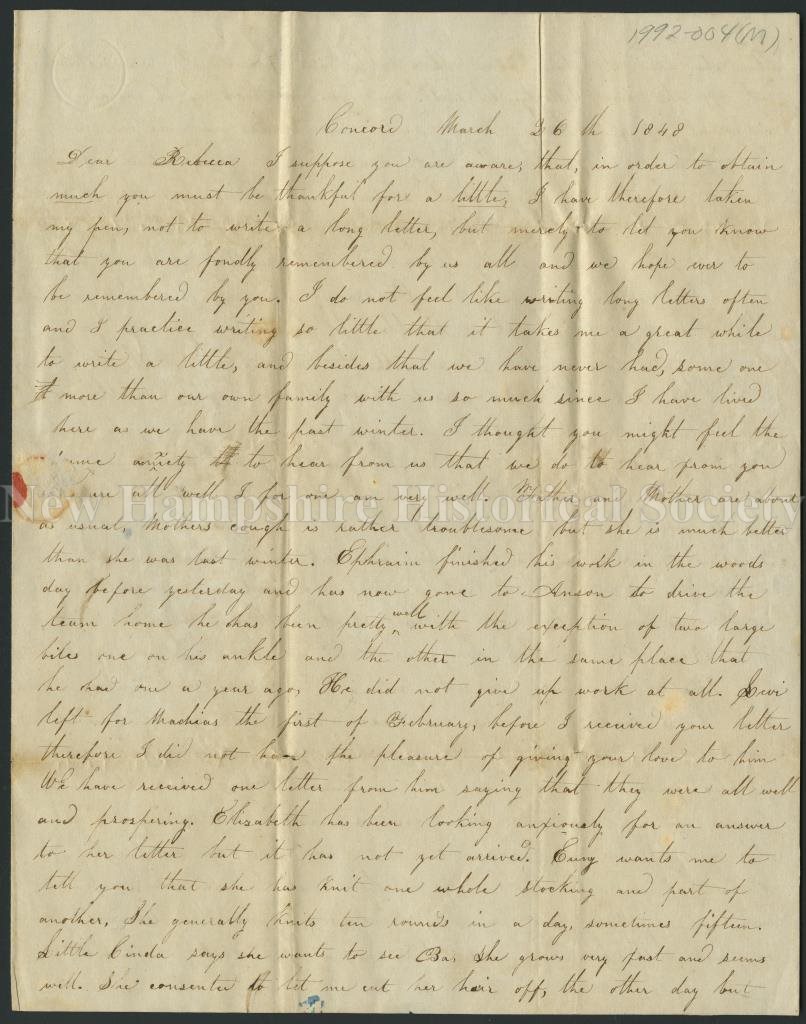 1992-004(M)
Concord March 26th 1848
Dear Rebecca I suppose you are aware, that, in order to obtain
much you must be thankful for a little, I have therefore taken
my pen, not to write a long letter, but merely to let you know
that you are fondly remembered by us all and we hope ever to
be remembered by you. I do not feel like writing long letters often
and I practice writing so little that it takes me a great while
to write a little, and besides that we have never had, some one
more than our own family with us so much since I have lived
here as we have the past winter. I thought you might feel the
same anxiety to hear from us that we do to hear from you
are all well I for one am very well. Father and Mother are about
New Hampshire Historical Society
as usual, Mothers cough is rather troublesome but she is much better
than she was last winter. Ephraim finished his work in the woods
day before yesterday and has now gone to Anson to drive the
team home he has been pretty well with the exception of two large
biles one on his ankle and the other in the same place that
he had one a year ago, He did not give up work at all. Levi
left for Machias the first of February, before I received your letter
therefore I did not have the pleasure of giving your love to him
We have received one letter from him saying that they were all well
and prospering. Elizabeth has been looking anxiously for an answer
to her letter but it has not yet arrived. wants me to
tell you that she has knit one whole stocking and part of
another, She generally knits ten rounds in a day, sometimes fifteen.
Little Cinda says she wants to see Ba, She grows very fast and seems
well. She consented to let me cut her hair off, the other day but